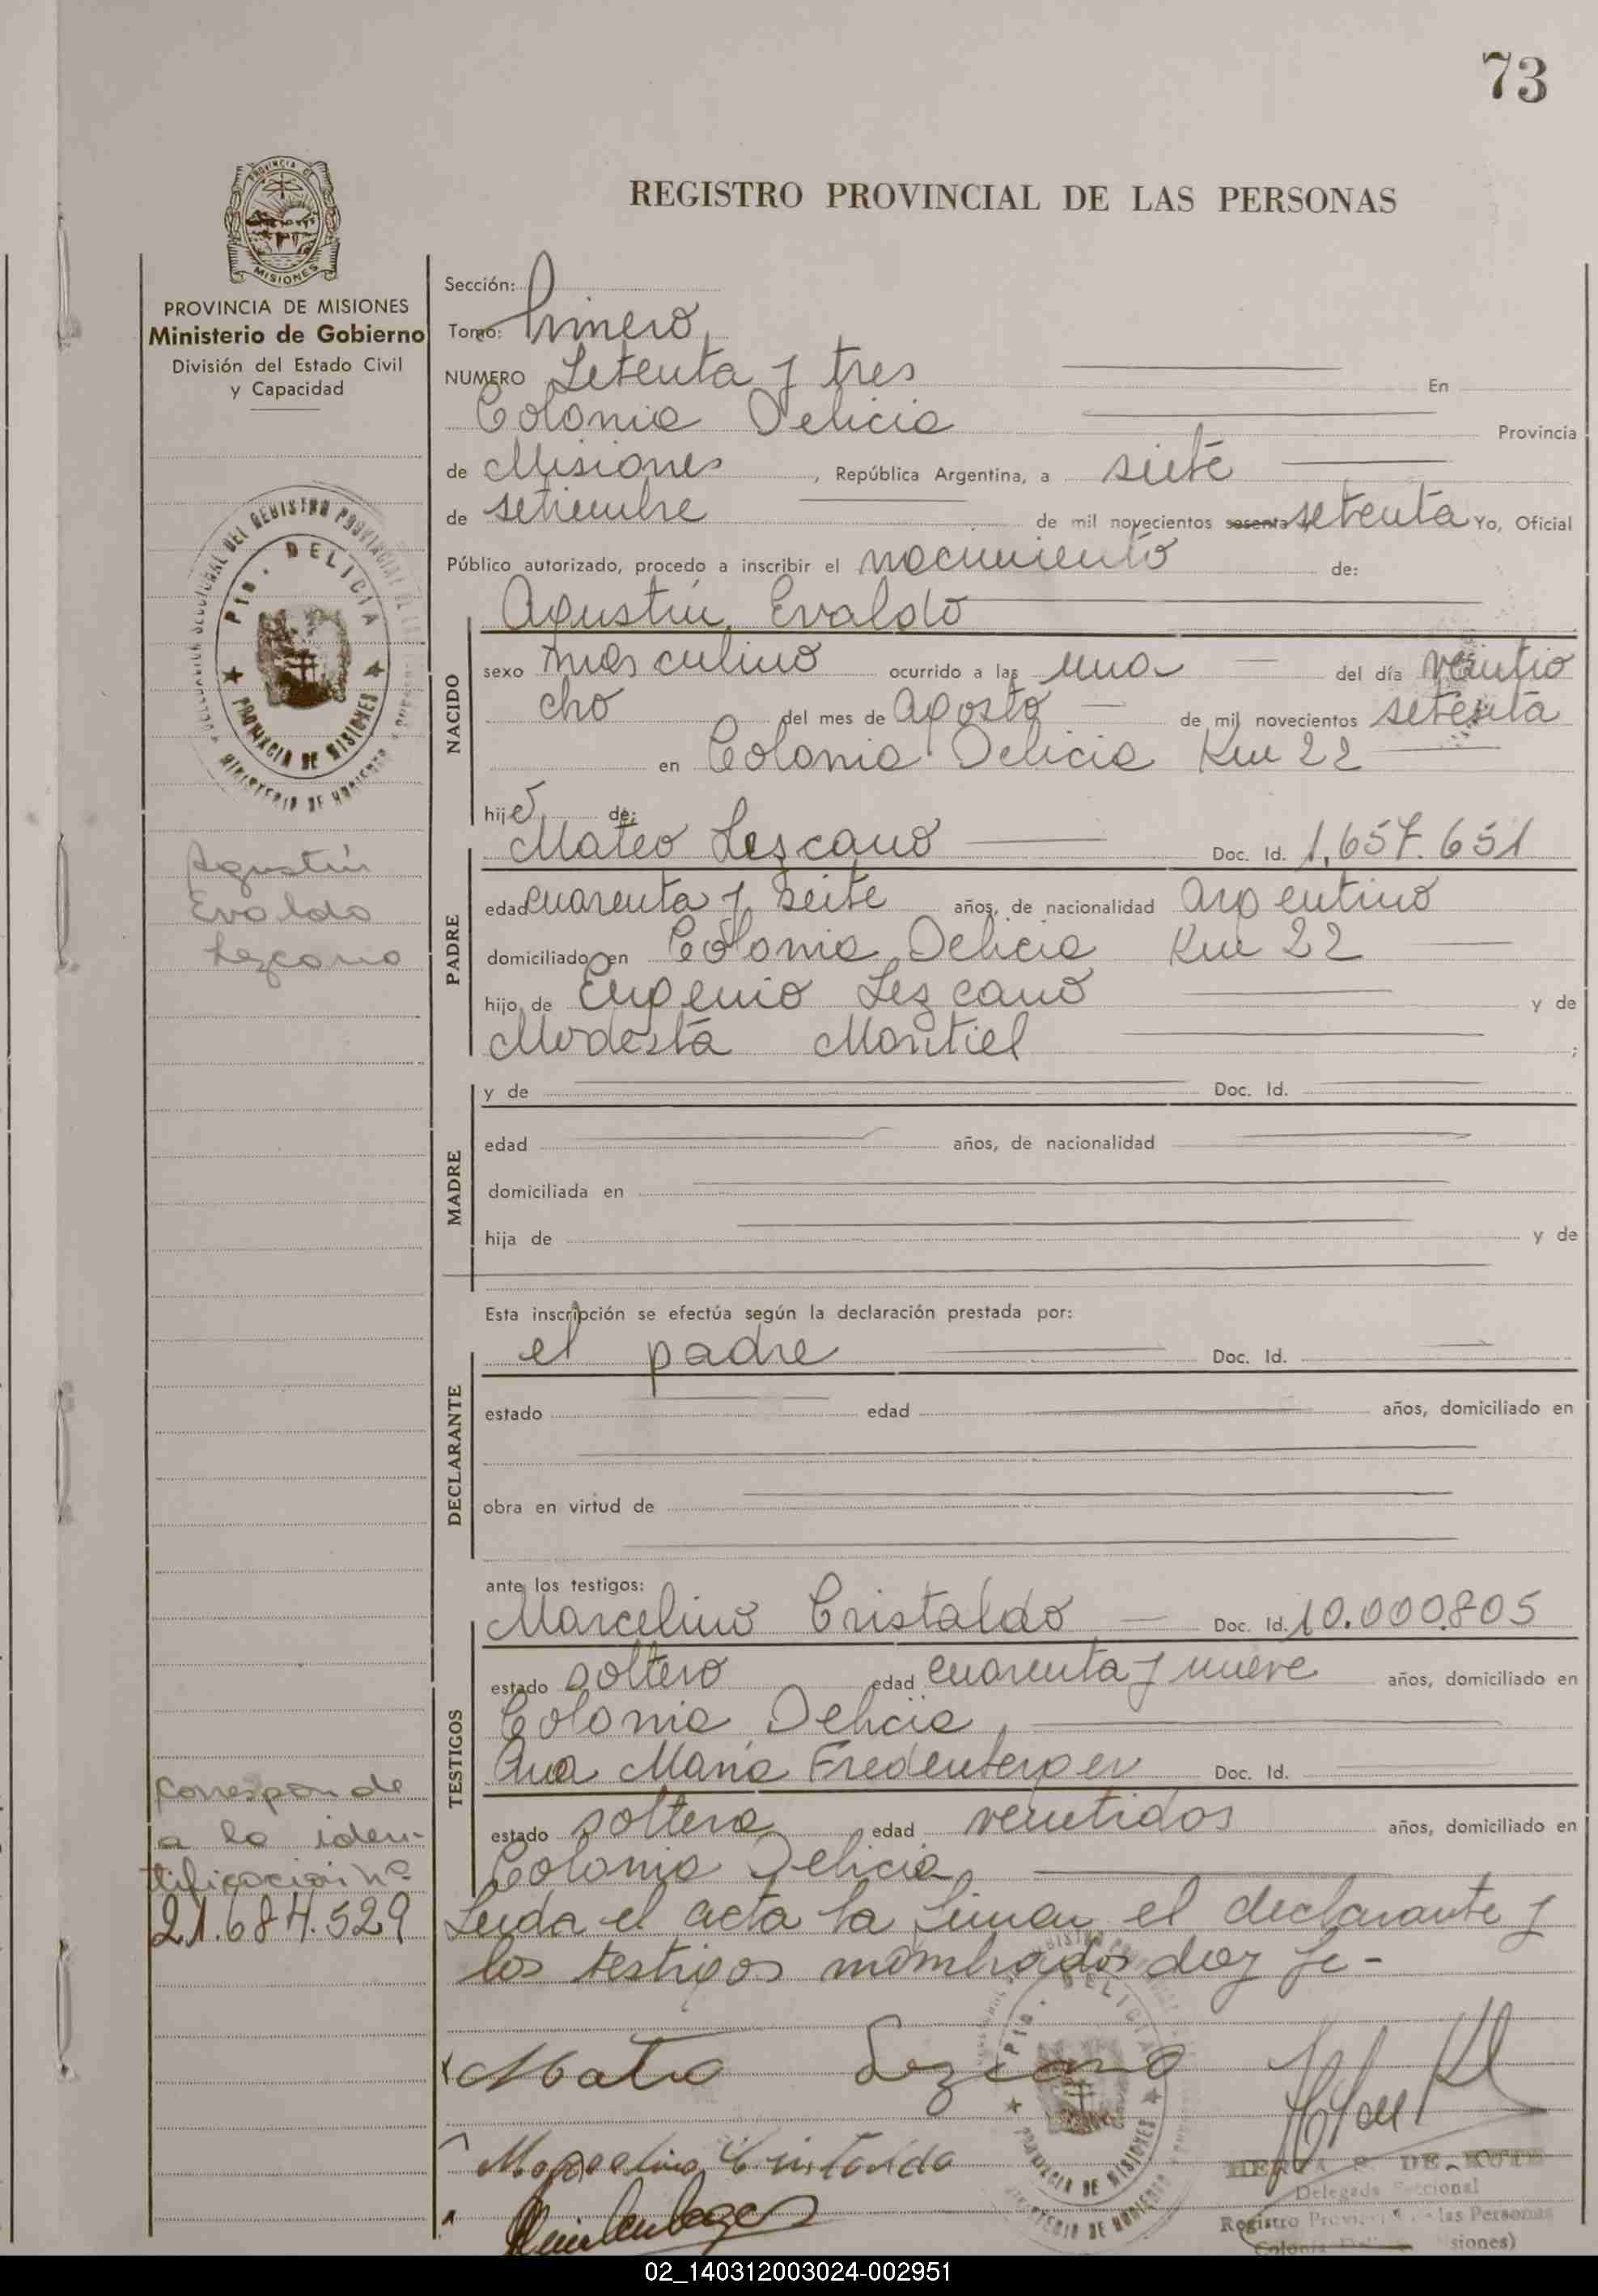 73
PROVINCIA DE
MISIONES
REGISTRO PROVINCIAL DE LAS PERSONAS
PROVINCIA DE MISIONES
Ministerio de Gobierno
División del Estado Civil
y Capacidad
Sección:
Tomo: Primero
NUMERO Setenta y tres En
Colonia Delicia Provincia
de Misiones, República Argentina, a siete
de setiembre de mil novecientos sesenta setenta Yo, Oficial
Público autorizado, procedo a inscribir el nacimiento de:
Agustín Evaldo
NACIDO
sexo masculino ocurrido a las una del día veintio
cho del mes de Agosto de mil novecientos setenta
en Colonia Delicia Km 22
hijo de:
Mateo Lezcano Doc. Id. 1.657.651
PADRE
edad cuarenta y seite años, de nacionalidad Argentino
domiciliado en Colonia Delicia Km 22
hijo de Eugenio Lezcano y de
Modesta Montiel ;
MADRE
y de Doc. Id.
edad años, de nacionalidad
domiciliada en
hija de y de
Esta inscripción se efectúa según la declaración prestada por:
DECLARANTE
el padre Doc. Id.
estado edad años, domiciliado en
obra en virtud de
ante los testigos:
TESTIGOS
Marcelino Cristaldo Doc. Id. 10.000.805
estado soltero edad cuarenta y nueve años, domiciliado en
Colonia Delicia,
Ana María Fredenberger Doc. Id.
estado soltera edad veintidos años, domiciliado en
Colonia Delicia,
Leida el acta la firman el declarante y
los testigos nombrados doy fe-
Mateo Lezcano
Marcelino Cristaldo
HERTA P. DE KUTE
Delegada Seccional
Registro Provincial de las Personas
Pto. DELICIA
PROVINCIA DE MISIONES
MINISTERIO DE GOBIERNO
Agustín
Evaldo
Lezcano
Corresponde
a la iden-
tificación nº
21.684.529
02_140312003024-002951